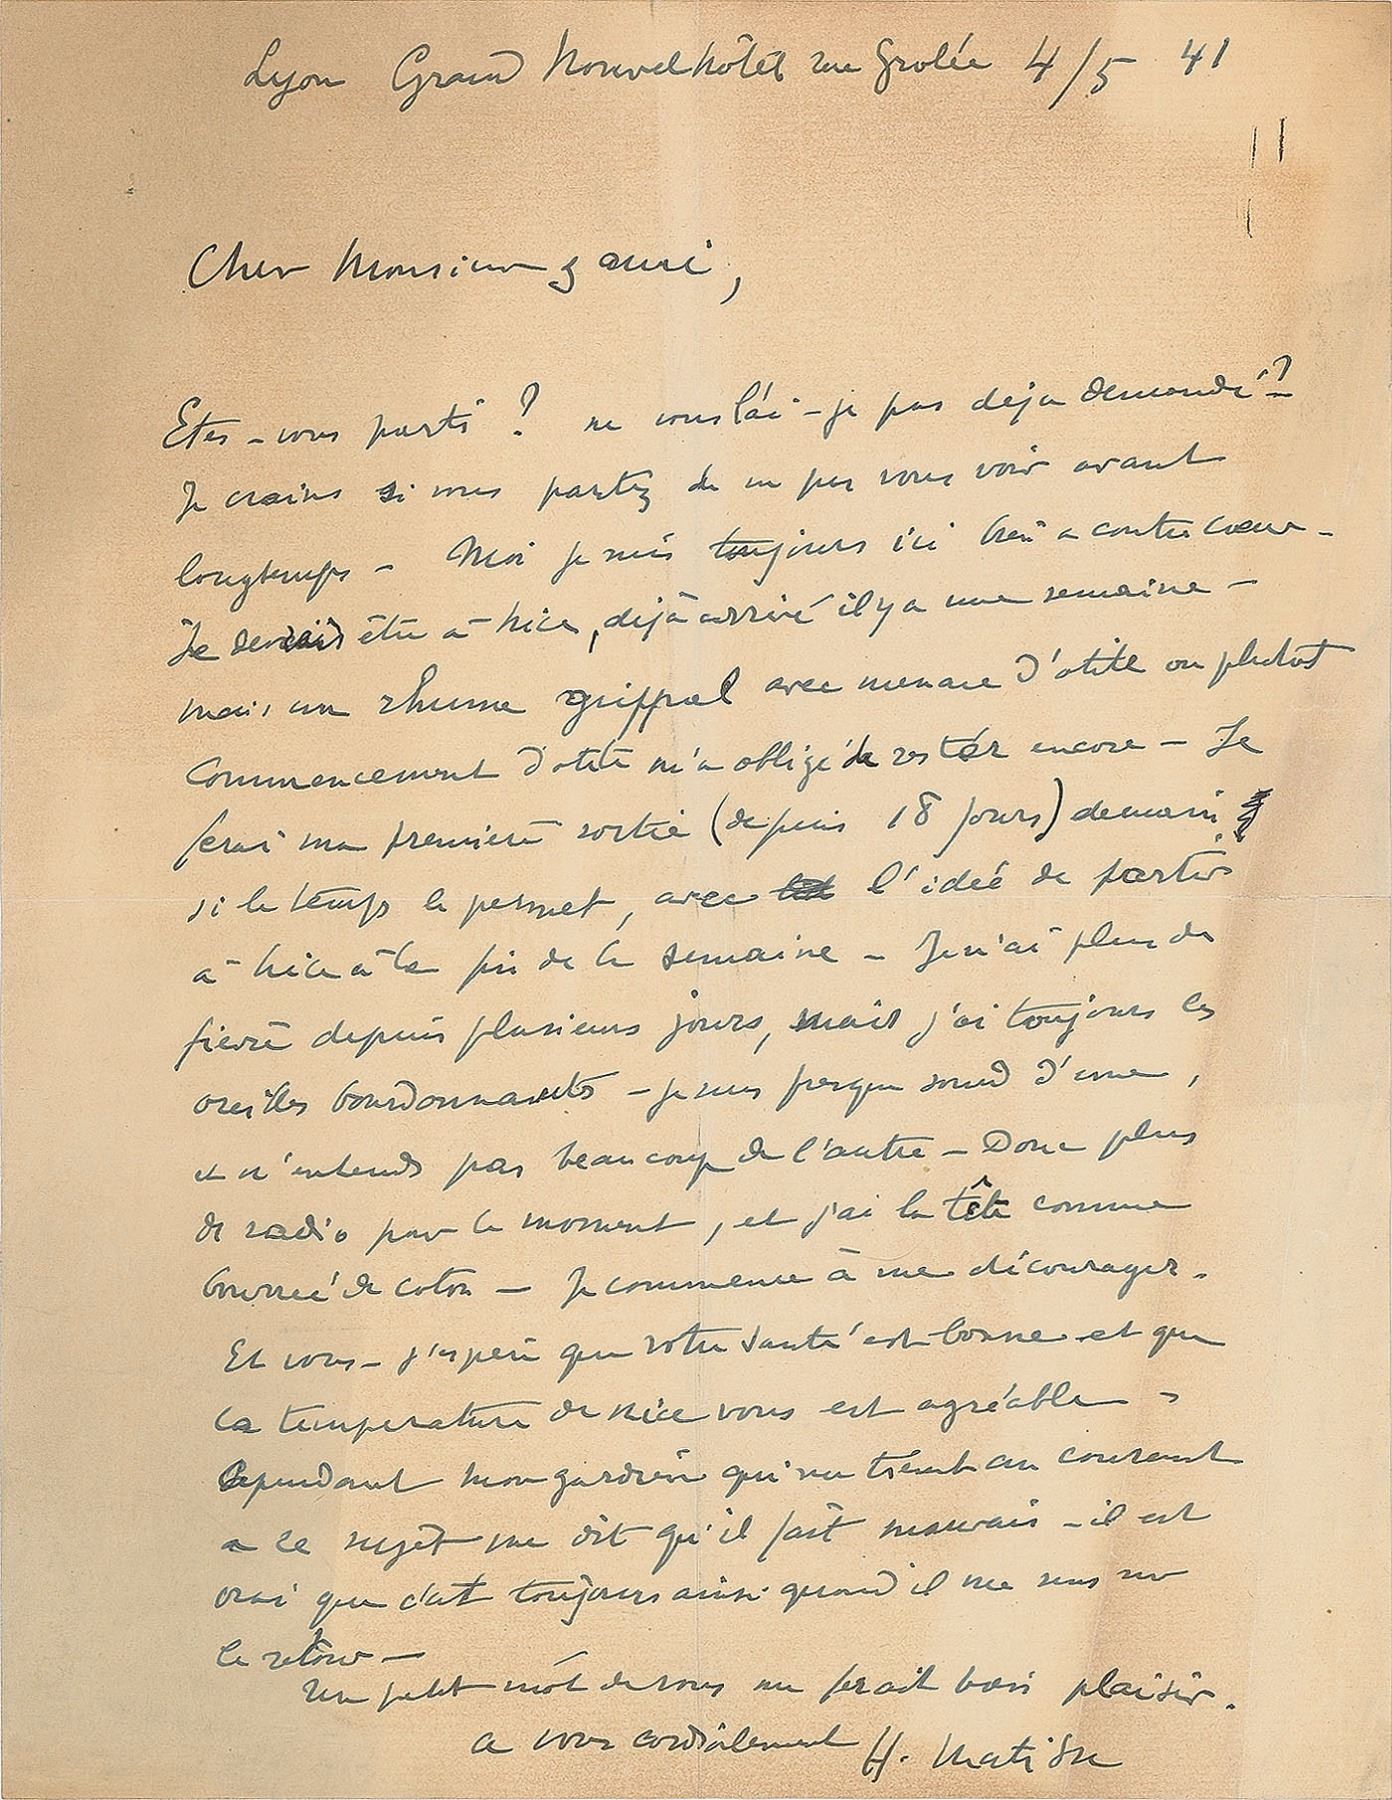 Lyon Grand Nouvel hôtel rue Grolée 4/5 41
Cher Monsieur & ami,
Etes-vous parti ? ne vous l'ai-je pas deja demandé ?
Je crains si vous partez de ne pas vous voir avant
longtemps - Moi je suis toujours ici bien a contre coeur -
Je devrais être à Nice, déjà arrivé il y a une semaine -
mais un rhume grippal avec menace d'otite ou plutot
commencement d'otite m'a obligé de rester encore - Je
ferai ma premiere sortie (depuis 18 jours) demain
si le temps le permet, avec l'idée de partir
à Nice à la fin de la semaine - Je n'ai plus de
fievre depuis plusieurs jours, mais j'ai toujours les
oreilles bourdonnantes - je suis presque sourd d'une,
et n'entends pas beaucoup de l'autre - Donc plus
de radio pour le moment, et j'ai la tête comme
bourrée de coton - Je commence à me décourager.
Et vous - j'espere que votre santé est bonne et que
la temperature de Nice vous est agréable -
Cependant mon gardien qui me tient au courant
a ce sujet me dit qu'il fait mauvais - il est
vrai que c'est toujours ainsi quand il me sens sur
le retour -
Un petit mot de vous me ferait bien plaisir.
a vous cordialement H. Matisse